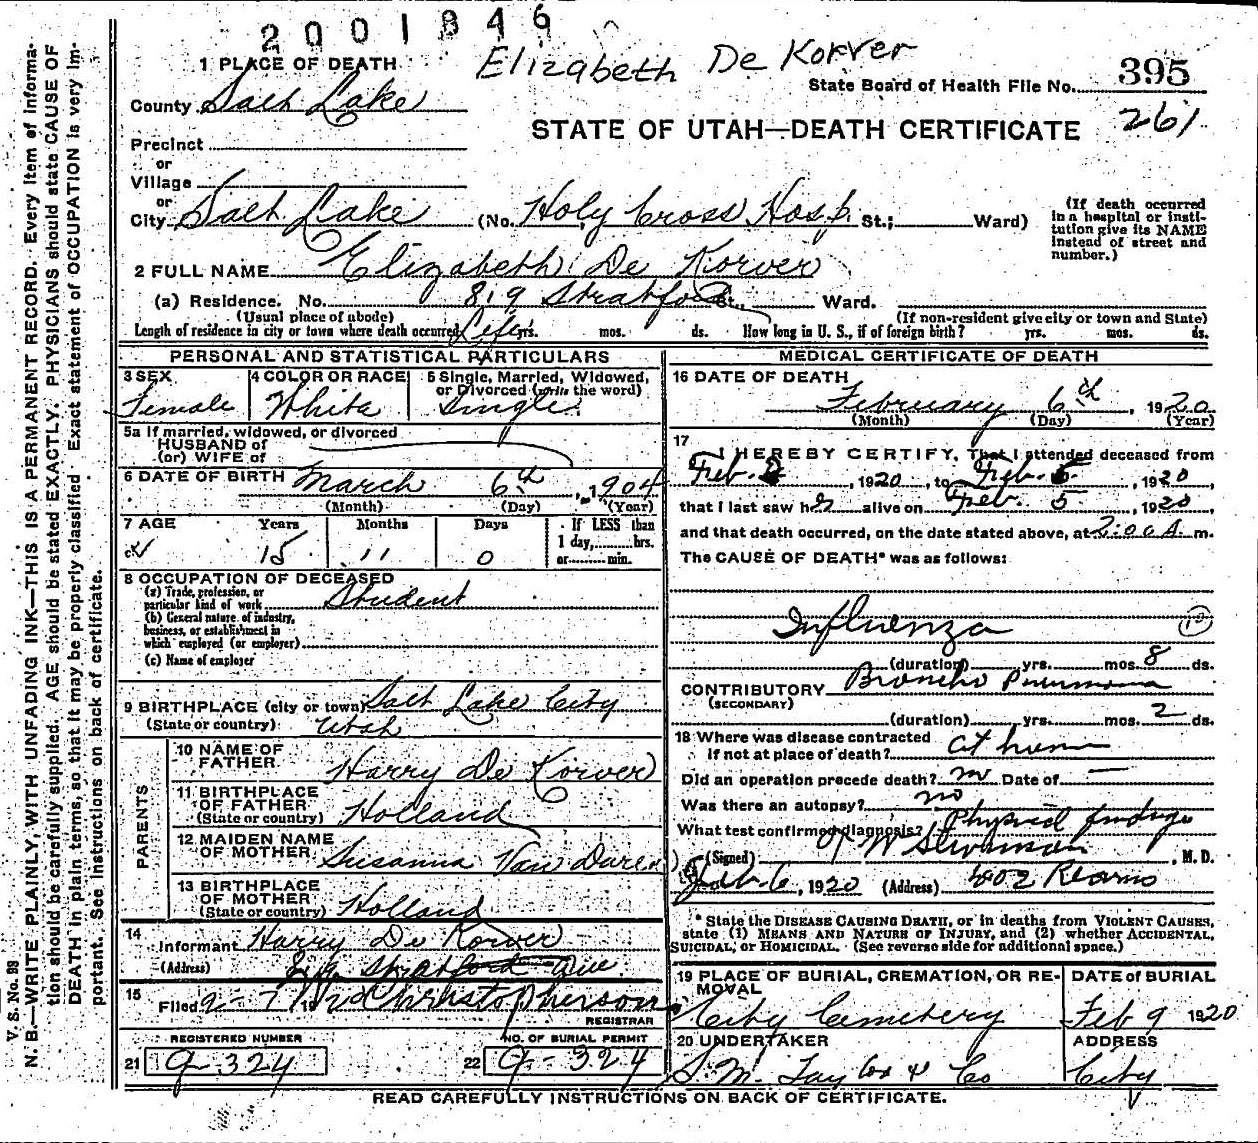 2001846
Elizabeth De Korver
1 PLACE OF DEATH
State Board of Health File No. 395
County Salt Lake
261
STATE OF UTAH—DEATH CERTIFICATE
Precinct
or
Village
or
City Salt Lake (No. Holy Cross Hosp. St.; Ward)
(If death occurred in a hospital or insti-
tution give its NAME
instead of street and
number.)
2 FULL NAME Elizabeth De Korver
(a) Residence. No. 819 Stratford St., Ward.
(Usual place of abode) (If non-resident give city or town and State)
Length of residence in city or town where death occurred Life yrs. mos. ds. How long in U. S., if of foreign birth? yrs. mos. ds.
PERSONAL AND STATISTICAL PARTICULARS
3 SEX 4 COLOR OR RACE 5 Single, Married, Widowed,
or Divorced (write the word)
Female White Single
5a If married, widowed, or divorced
HUSBAND of
(or) WIFE of
6 DATE OF BIRTH March 6th, 1904
(Month) (Day) (Year)
7 AGE Years Months Days If LESS than
1 day, hrs.
or min.
15 11 0
8 OCCUPATION OF DECEASED
(a) Trade, profession, or
particular kind of work Student
(b) General nature of industry,
business, or establishment in
which employed (or employer)
(c) Name of employer
9 BIRTHPLACE (city or town) Salt Lake City
(State or country) Utah
PARENTS
10 NAME OF
FATHER Harry De Korver
11 BIRTHPLACE
OF FATHER
(State or country) Holland
12 MAIDEN NAME
OF MOTHER Susanna Van Duren
13 BIRTHPLACE
OF MOTHER
(State or country) Holland
14
Informant Harry De Korver
(Address) 819 Stratford Ave.
15
Filed 2-7 1920 Christopherson
REGISTRAR
REGISTERED NUMBER NO. OF BURIAL PERMIT
21 9-324 22 9-324
MEDICAL CERTIFICATE OF DEATH
16 DATE OF DEATH
February 6th, 1920
(Month) (Day) (Year)
17
I HEREBY CERTIFY, That I attended deceased from
Feb. 2, 1920, to Feb. 5, 1920,
that I last saw her alive on Feb. 5, 1920,
and that death occurred, on the date stated above, at 2:00 A. m.
The CAUSE OF DEATH* was as follows:
Influenza 10
(duration) yrs. mos. 8 ds.
CONTRIBUTORY Broncho Pneumonia
(SECONDARY)
(duration) yrs. mos. 2 ds.
18 Where was disease contracted
if not at place of death? at home
Did an operation precede death? no Date of —
Was there an autopsy? no
What test confirmed diagnosis? Physical findings
(Signed) W Stevenson, M. D.
Feb 6, 1920 (Address) 402 Kearns
* State the DISEASE CAUSING DEATH, or in deaths from VIOLENT CAUSES,
state (1) MEANS AND NATURE OF INJURY, and (2) whether ACCIDENTAL,
SUICIDAL, or HOMICIDAL. (See reverse side for additional space.)
19 PLACE OF BURIAL, CREMATION, OR RE-
MOVAL DATE of BURIAL
City Cemetery Feb 9 1920
20 UNDERTAKER ADDRESS
S. M. Taylor & Co City
READ CAREFULLY INSTRUCTIONS ON BACK OF CERTIFICATE.
V. S. No. 99
N. B.—WRITE PLAINLY, WITH UNFADING INK—THIS IS A PERMANENT RECORD. Every item of informa-
tion should be carefully supplied. AGE should be stated EXACTLY. PHYSICIANS should state CAUSE OF
DEATH in plain terms, so that it may be properly classified. Exact statement of OCCUPATION is very im-
portant. See instructions on back of certificate.